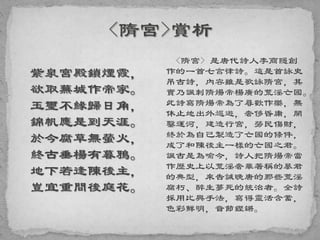 <隋宮>賞析
紫泉宮殿鎖煙霞，
欲取蕪城作帝家。
玉璽不緣歸日角，
錦帆應是到天涯。
於今腐草無螢火，
終古垂楊有暮鴉。
地下若逢陳後主，
豈宜重問後庭花。
〈隋宮〉是唐代詩人李商隱創
作的一首七言律詩。這是首詠史
吊古詩，內容雖是歌詠隋宮，其
實乃諷刺隋煬帝楊廣的荒淫亡國。
此詩寫隋煬帝為了尋歡作樂，無
休止地出外巡遊，奢侈昏庸，開
鑿運河，建造行宮，勞民傷財，
終於為自己製造了亡國的條件，
成了和陳後主一樣的亡國之君。
諷古是為喻今，詩人把隋煬帝當
作歷史上以荒淫奢華著稱的暴君
的典型，來告誡晚唐的那些荒淫
腐朽、醉生夢死的統治者。全詩
採用比興手法，寫得靈活含蓄，
色彩鮮明，音節鏗鏘。